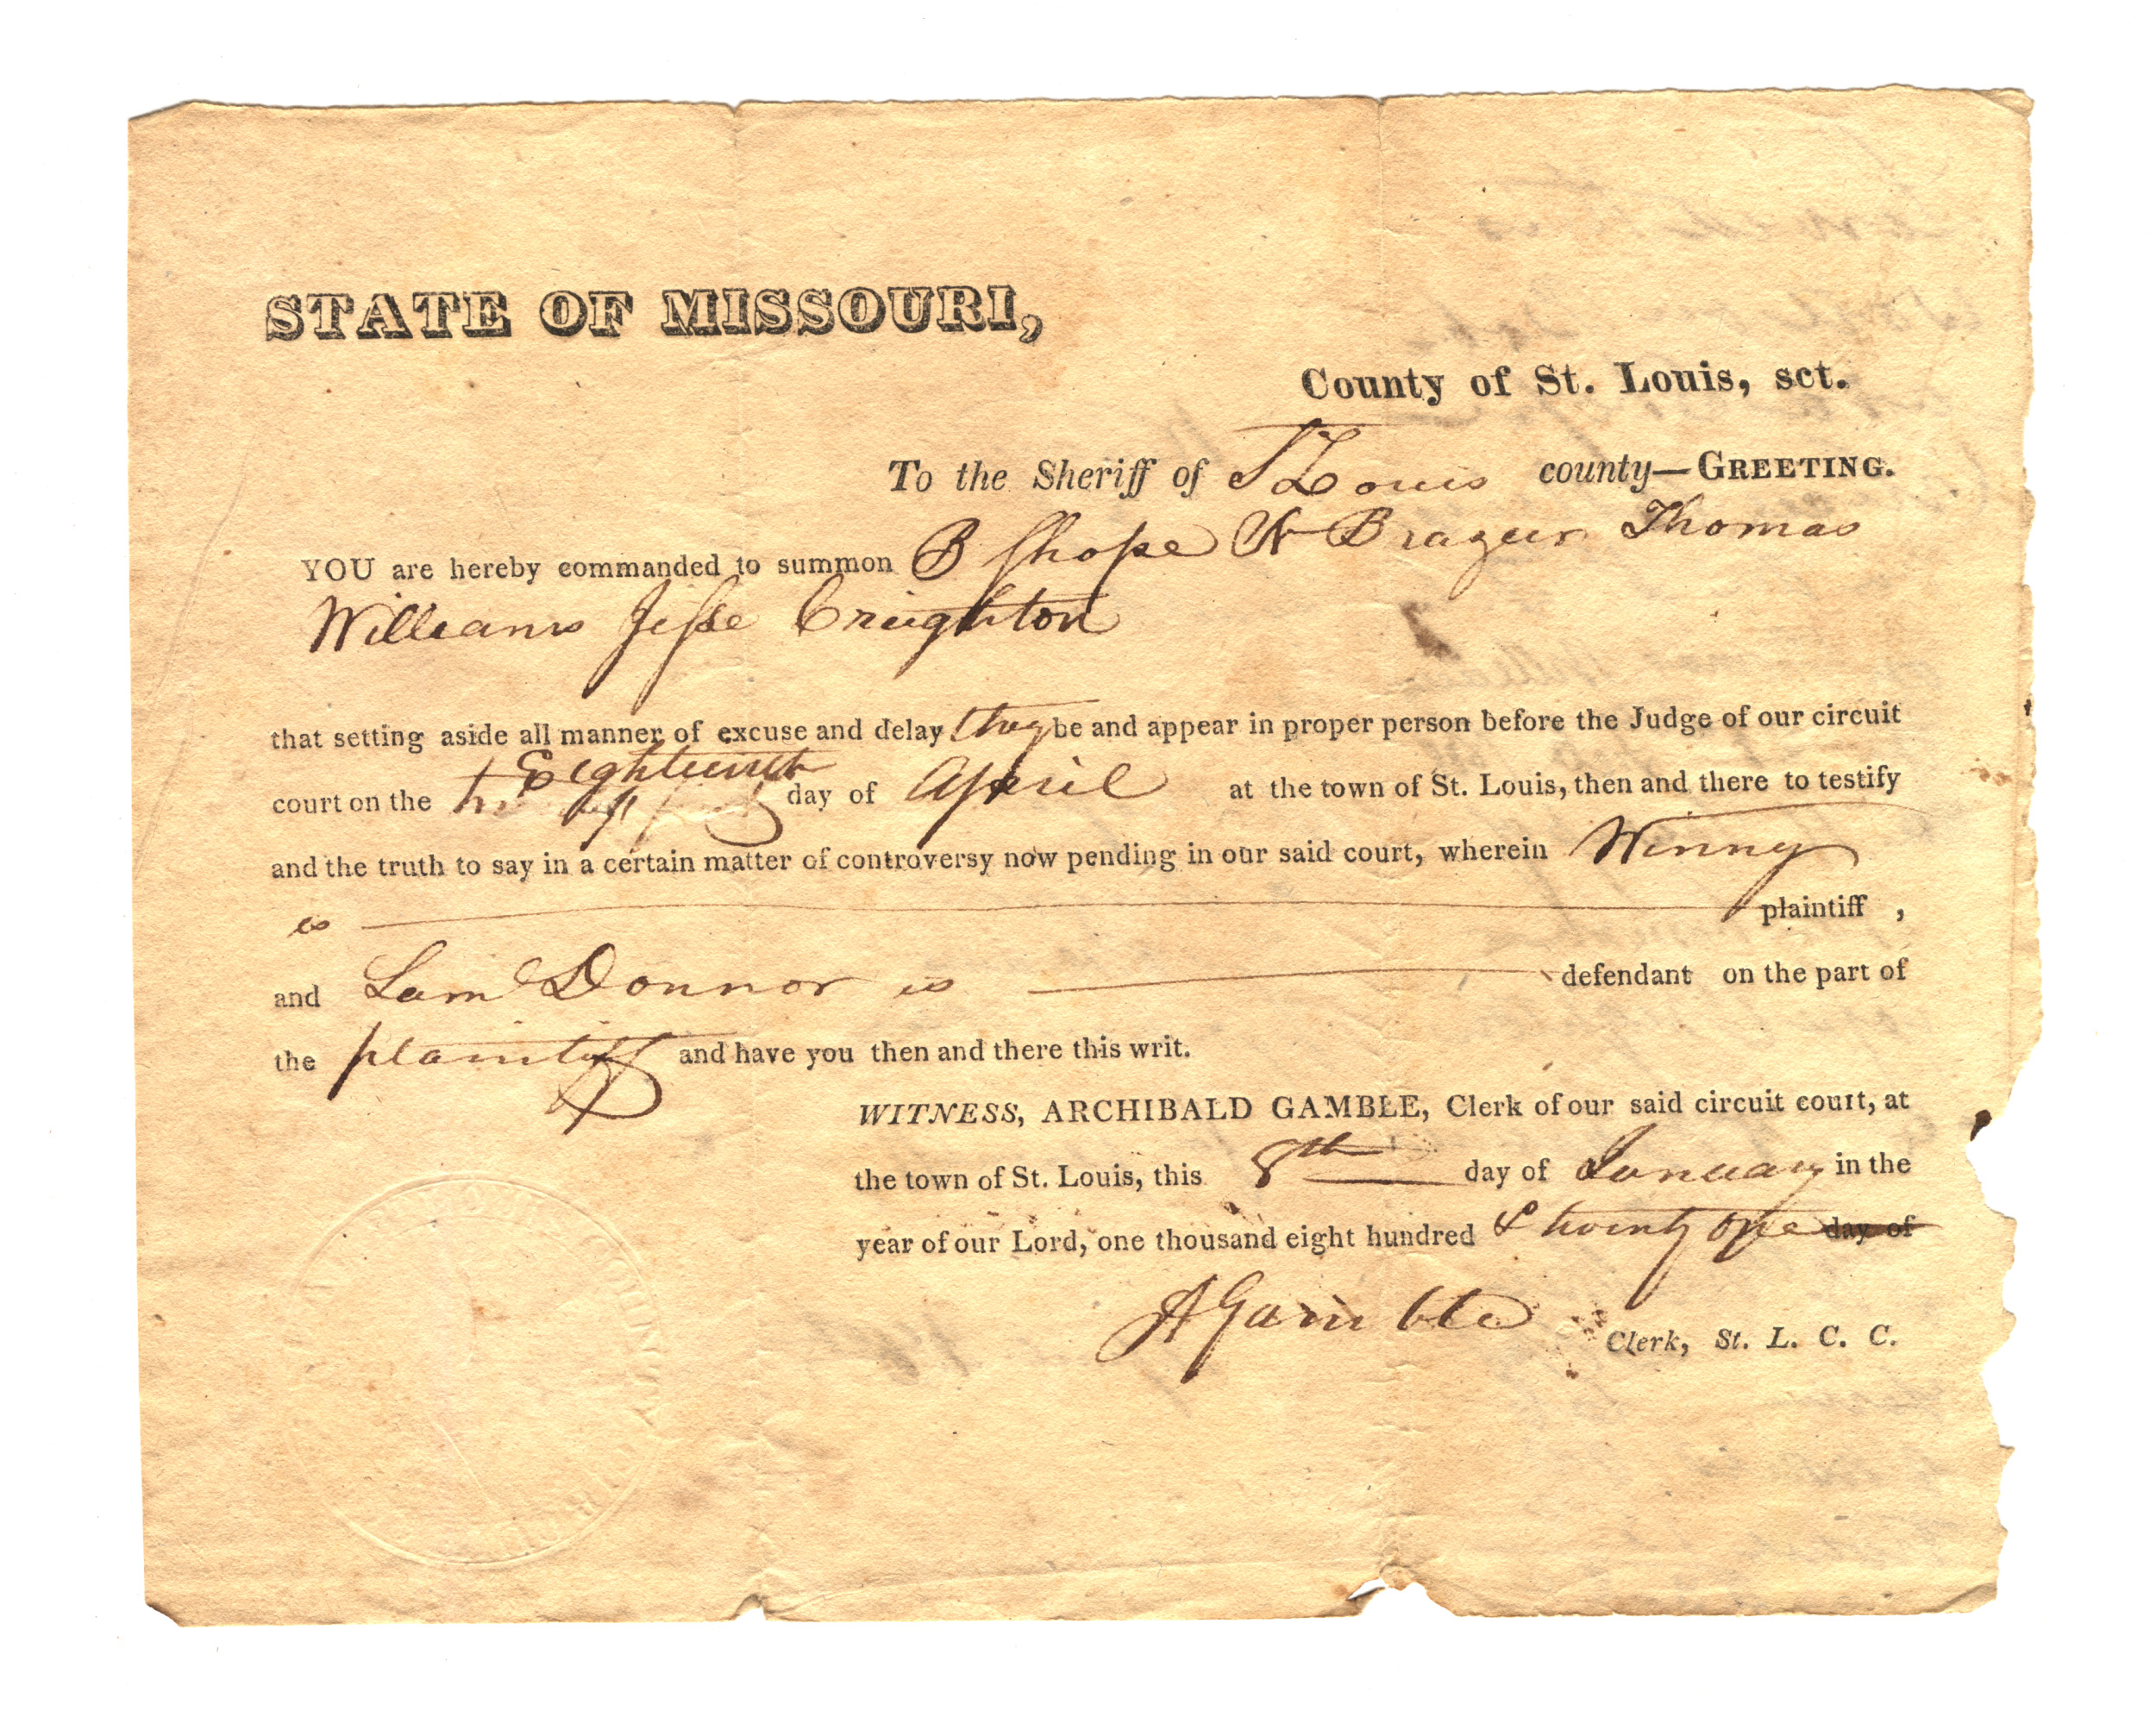 STATE OF MISSOURI,
County of St. Louis, sct.
To the Sheriff of St Louis county—GREETING.
YOU are hereby commanded to summon B Shope N Brazeur Thomas
Williams Jesse Creighton
that setting aside all manner of excuse and delay they be and appear in proper person before the Judge of our circuit
Eighteenth
court on the day of April at the town of St. Louis, then and there to testify
and the truth to say in a certain matter of controversy now pending in our said court, wherein Winny
is plaintiff ,
and Saml Donnor is defendant on the part of
the plaintiff and have you then and there this writ.
WITNESS, ARCHIBALD GAMBLE, Clerk of our said circuit court, at
the town of St. Louis, this 8th day of January in the
year of our Lord, one thousand eight hundred & twenty one day of
A Gamble Clerk, St. L. C. C.